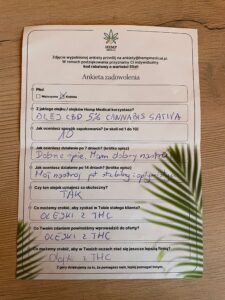 HEMP
MEDICAL
Zdjęcie wypełnionej ankiety prześlij na ankiety@hempmedical.pl.
W ramach podziękowania przyznamy Ci indywidualny
kod rabatowy o wartości
Ankieta zadowolenia
Płeć
Mężczyzna Kobieta
Z jakiego olejku / olejków Hemp Medical korzystasz?
OLEJ CBD 5% CANNABIS SATIVA
Jak oceniasz sposób zapakowania? (w skali od 1 do 10)
10
Jak oceniasz działanie po 7 dniach? (krótki opis)
Dobrze śpię, Mam dobry nastrój
Jak oceniasz działanie po 14 dniach? (krótki opis)
Mój nastrój jest stabilny i
Czy ten olejek uznajesz za skuteczny?
TAK
Co możemy zrobić, aby zyskać w Tobie stałego klienta?
OLEJKI Z THC
Co Twoim zdaniem powinniśmy wprowadzić do oferty?
OLEJKI Z THC
Co możemy zrobić, aby w Twoich oczach stać się jeszcze lepszą firmą?
Olejki z THC